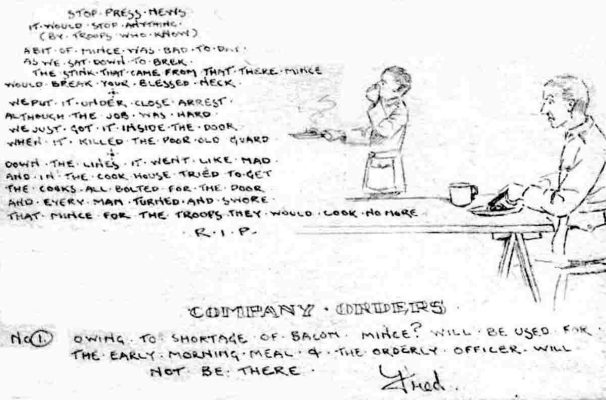 STOP · PRESS · NEWS
IT · WOULD · STOP · ANYTHING ·
(BY · TROOPS · WHO · KNOW)
A BIT · OF · MINCE · WAS · BAD · TO · DAY ·
AS · WE · SAT · DOWN · TO · BREK ·
THE STINK · THAT · CAME FROM · THAT · THERE · MINCE
WOULD · BREAK · YOUR · BLESSED · NECK ·
WE PUT · IT · UNDER · CLOSE · ARREST ·
ALTHOUGH · THE · JOB · WAS · HARD ·
WE JUST · GOT · IT · INSIDE · THE · DOOR ·
WHEN · IT · KILLED · THE POOR · OLD · GUARD
DOWN · THE · LINES · IT · WENT · LIKE · MAD ·
AND · IN · THE · COOK · HOUSE · TRIED · TO · GET
THE · COOKS · ALL · BOLTED · FOR · THE · DOOR
AND · EVERY · MAN · TURNED · AND · SWORE ·
THAT · MINCE · FOR · THE · TROOPS · THEY · WOULD · COOK · NO MORE
· R · I · P ·
COMPANY · ORDERS ·
No 1. OWING · TO · SHORTAGE · OF · BACON · MINCE? · WILL · BE · USED · FOR ·
THE · EARLY · MORNING · MEAL · & · THE · ORDERLY · OFFICER · WILL
NOT · BE · THERE ·
Fred.